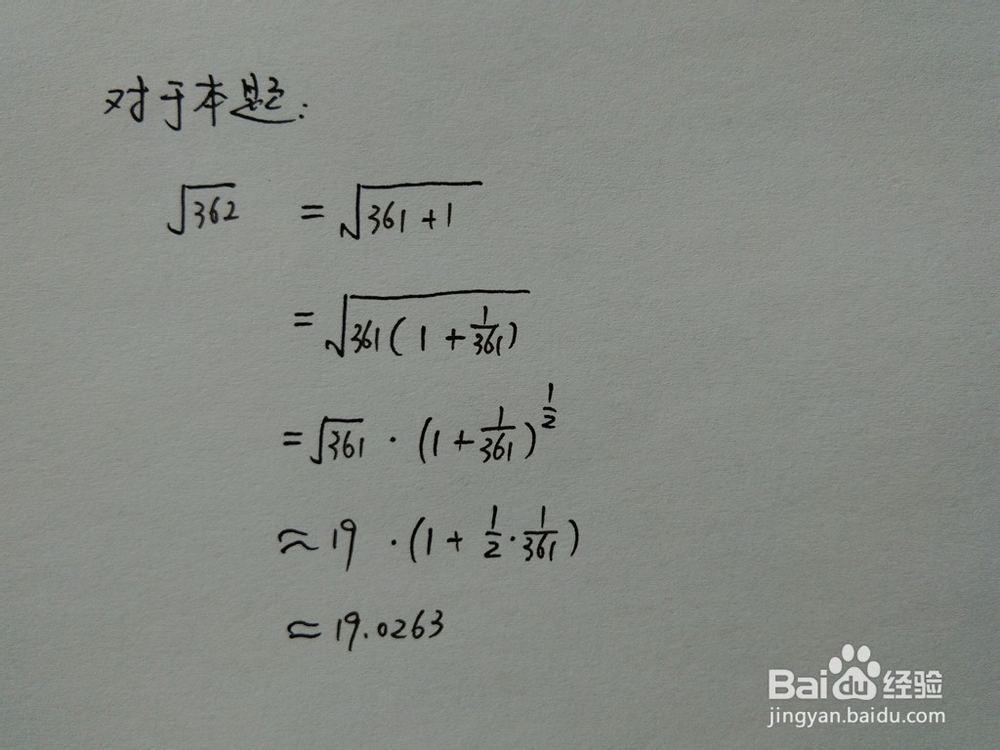 对于本题:
√362 = √(361 + 1)
= √(361(1 + 1/361))
= √361 · (1 + 1/361)^(1/2)
≈ 19 · (1 + 1/2 · 1/361)
≈ 19.0263
Baidu经验
jingyan.baidu.com